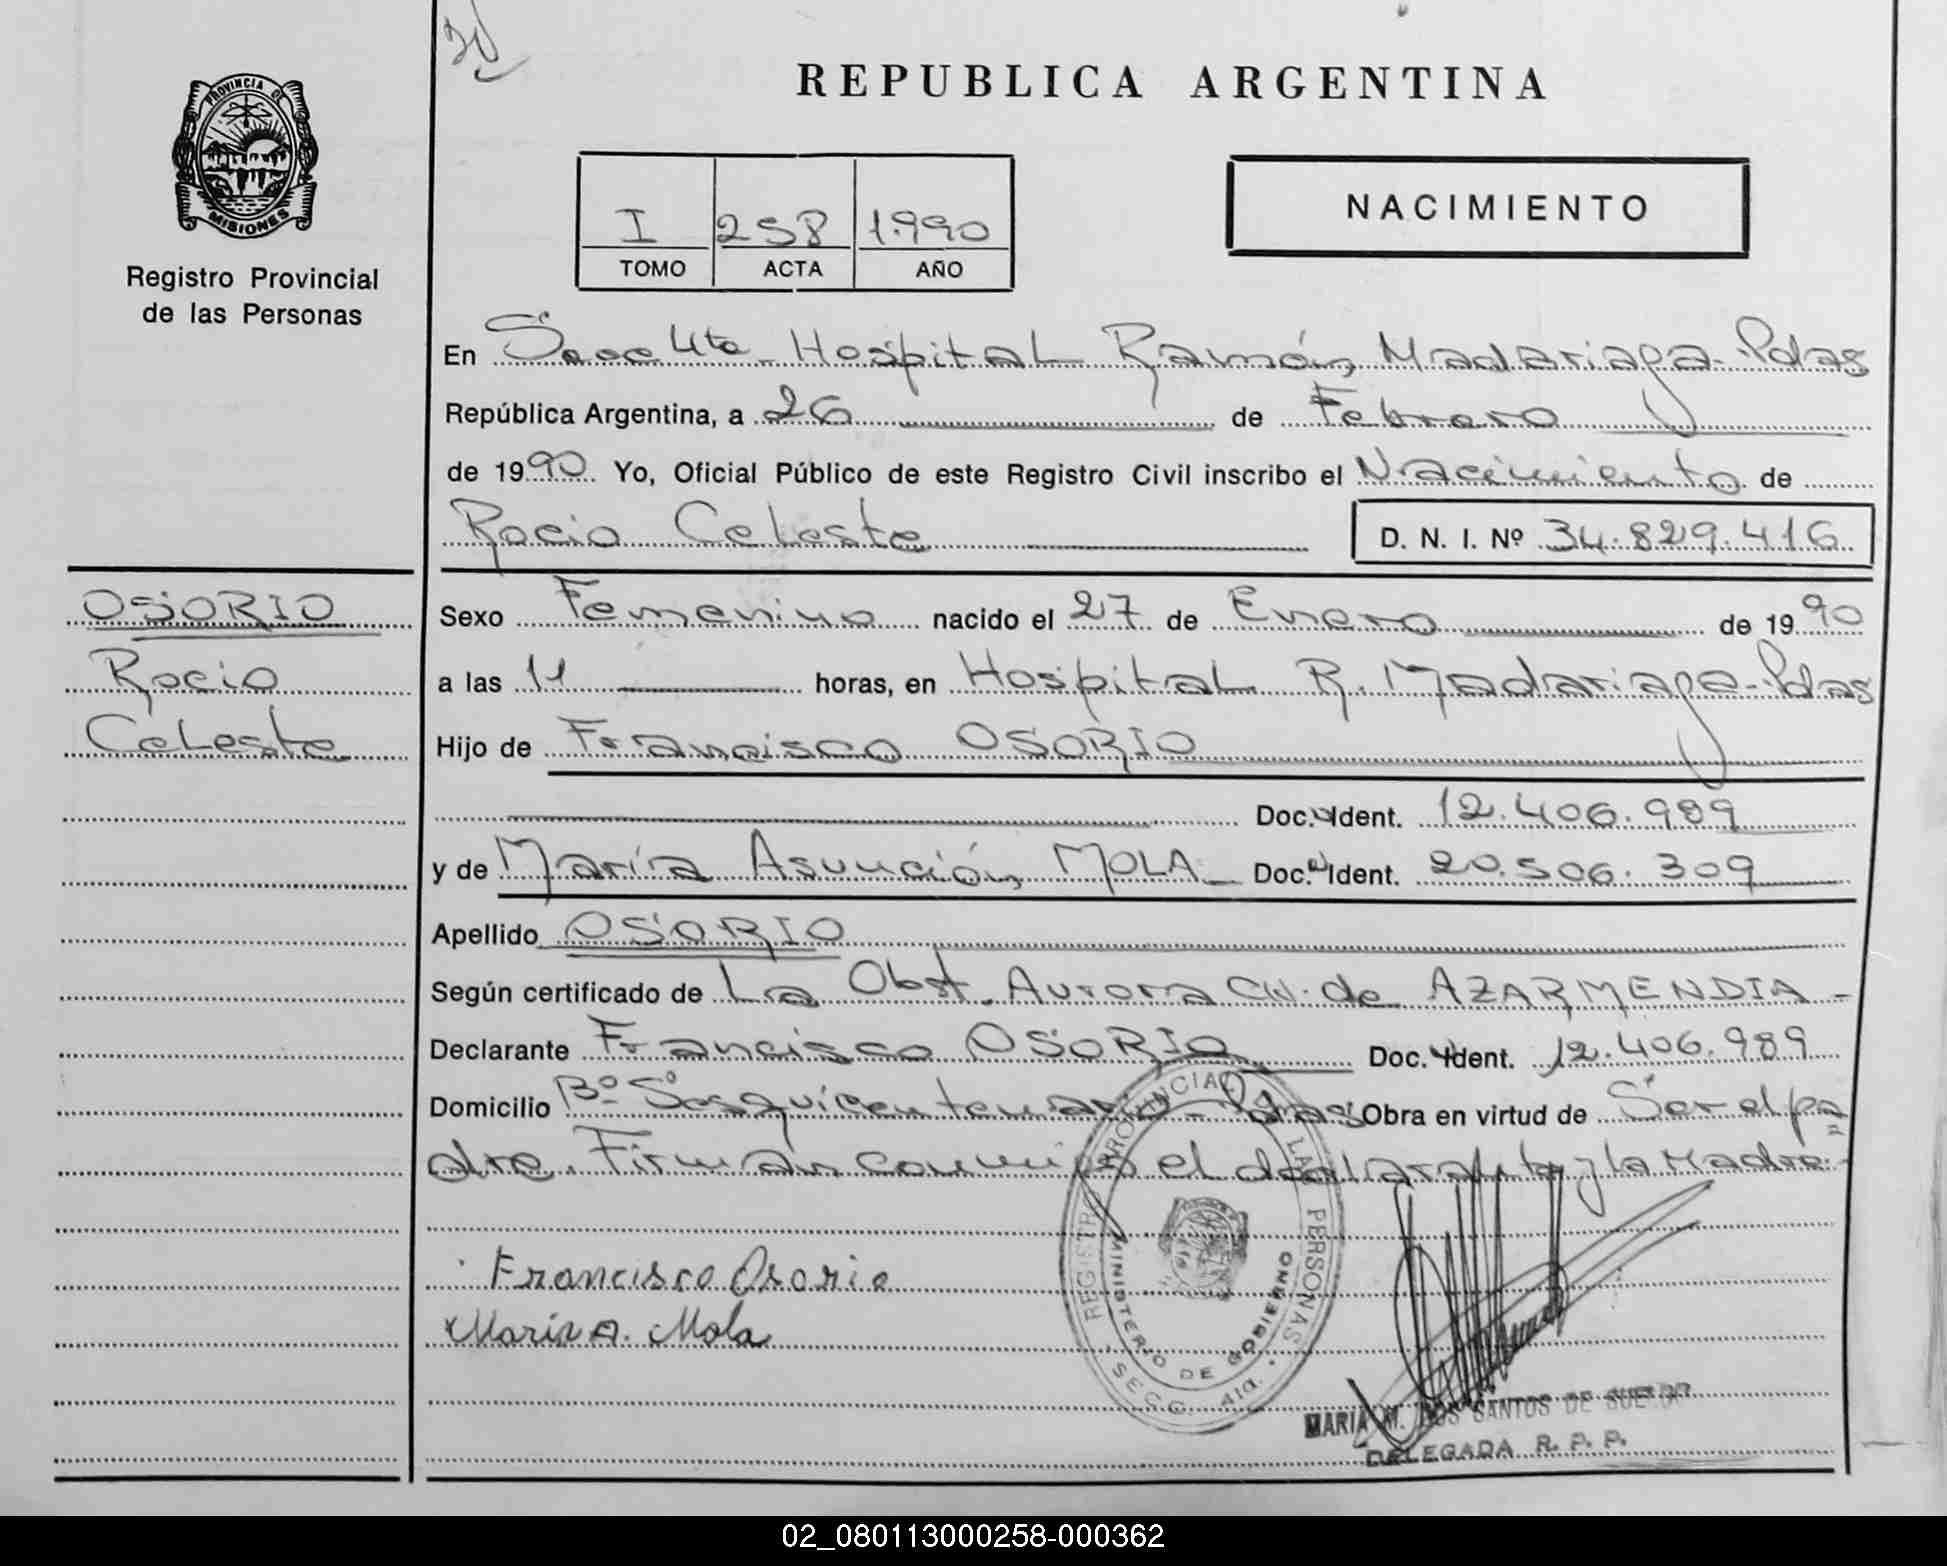 REPUBLICA ARGENTINA
PROVINCIA DE
MISIONES
Registro Provincial
de las Personas
I 258 1.990
TOMO ACTA AÑO
NACIMIENTO
En Secc 4ta Hospital Ramón Madariaga-Pdas
República Argentina, a 26 de Febrero
de 1990 Yo, Oficial Público de este Registro Civil inscribo el Nacimiento de
Rocio Celeste D. N. I. Nº 34.829.416
OSORIO
Rocio
Celeste
Sexo Femenino nacido el 27 de Enero de 1990
a las 11 horas, en Hospital R. Madariaga-Pdas
Hijo de Francisco OSORIO
Doc. Ident. 12.406.989
y de María Asunción MOLA Doc. Ident. 20.506.309
Apellido OSORIO
Según certificado de La Obst. Aurora CH. de AZARMENDIA -
Declarante Francisco OSORIO Doc. Ident. 12.406.989
Domicilio Bº Sesquicentenario - Pdas Obra en virtud de Ser el pa=
dre. Firman conmigo el declarante y la Madre.-
Francisco Osorio
Maria A. Mola
REGISTRO PROVINCIAL LAS PERSONAS
MINISTERIO DE GOBIERNO
SECC. 4ta.
MARIA M. DOS SANTOS DE
DELEGADA R. P. P.
02_080113000258-000362